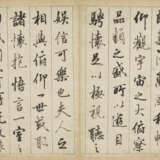 仰觀宇宙之大俯察
品類之盛所以遊目
騁懷足以極視聽之
娛信可樂也夫人之
相與俯仰一世或取
諸懷抱悟言一室